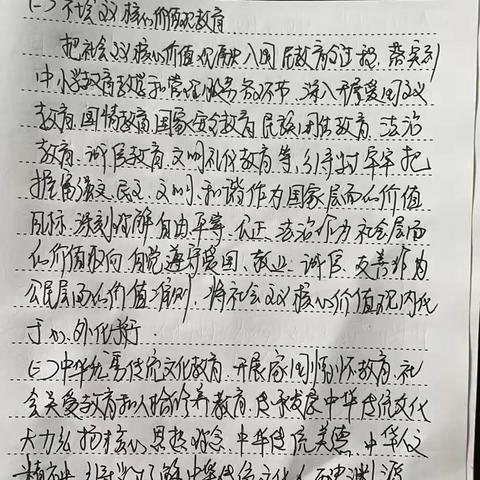 (二)社会主义核心价值观教育
把社会主义核心价值观融入国民教育全过程,落实到
中小学教育教学和管理服务各环节,深入开展爱国主义
教育、国情教育、国家安全教育、民族团结教育、法治
教育、诚信教育、文明礼仪教育等,引导学生牢牢把
握富强、民主、文明、和谐作为国家层面的价值
目标,深刻理解自由、平等、公正、法治作为社会层面
的价值取向,自觉遵守爱国、敬业、诚信、友善作为
公民层面的价值准则,将社会主义核心价值观内化
于心、外化于行
(三)中华优秀传统文化教育,开展家国情怀教育、社
会关爱教育和人格修养教育,传承发展中华传统文化
大力弘扬核心思想理念、中华传统美德、中华人文
精神,引导学生了解中华传统文化的历史渊源